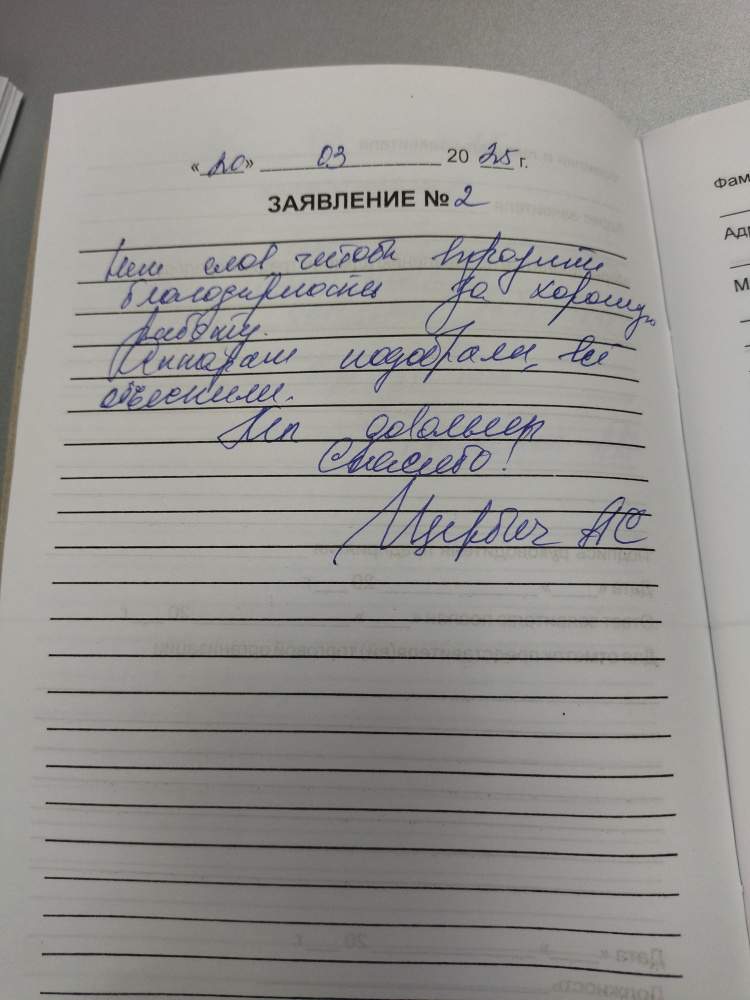 «20» 03 2025 г.
ЗАЯВЛЕНИЕ № 2
Нет слов чтобы выразить
благодарность за хорошую
работу.
Аппарат подобрали, всё
объяснили.
довольны
Спасибо!
Щербич АС
Фам
Адр
М